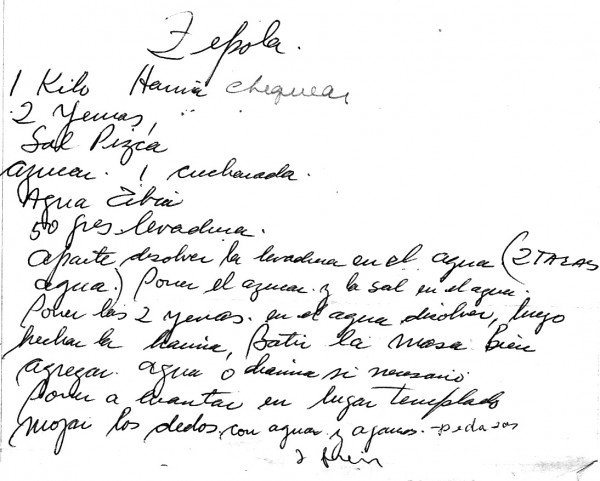 Zepola.
1 Kilo Harina chequear
2 Yemas,
Sal Pizca
azucar. 1 cucharada.
Agua Tibia
50 grs levadura.
aparte disolver la levadura en el agua (2 TAZAS
agua.) Poner el azucar y la sal en el agua.
Poner las 2 yemas. en el agua disolver, luego
hechar la harina, Batir la masa bien
agregar agua o harina si necesario
poner a levantar en lugar templado
mojar los dedos con agua y agamos - pedasos
y freir